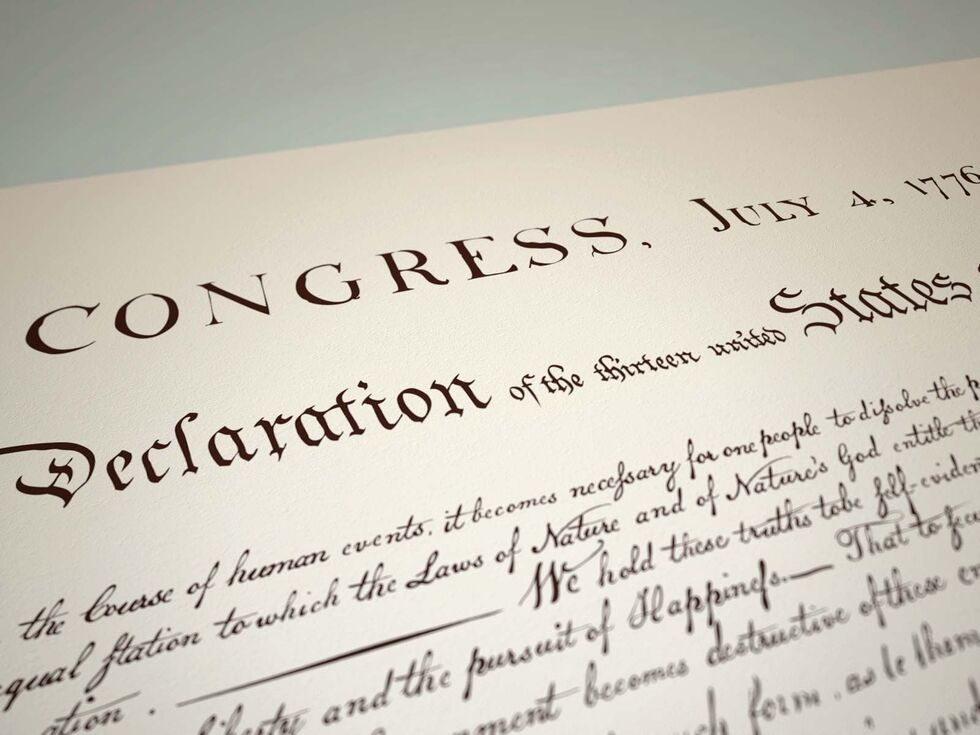 CONGRESS. JULY 4., 1776
Declaration of the thirteen united States
the Course of human events, it becomes neceſsary for one people to diſsolve the
equal ſtation to which the Laws of Nature and of Nature's God entitle
We hold these truths to be ſelf-evident
liberty and the pursuit of Happineſs.— That to
becomes destructive of these
form, as to them